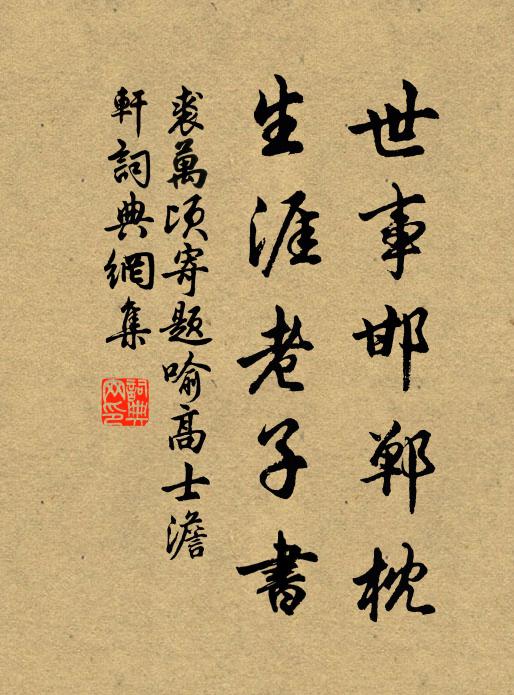 世事邯鄲枕
生涯老子書
裘萬頃寄題喻高士澹
軒詞典網集
詞典網印